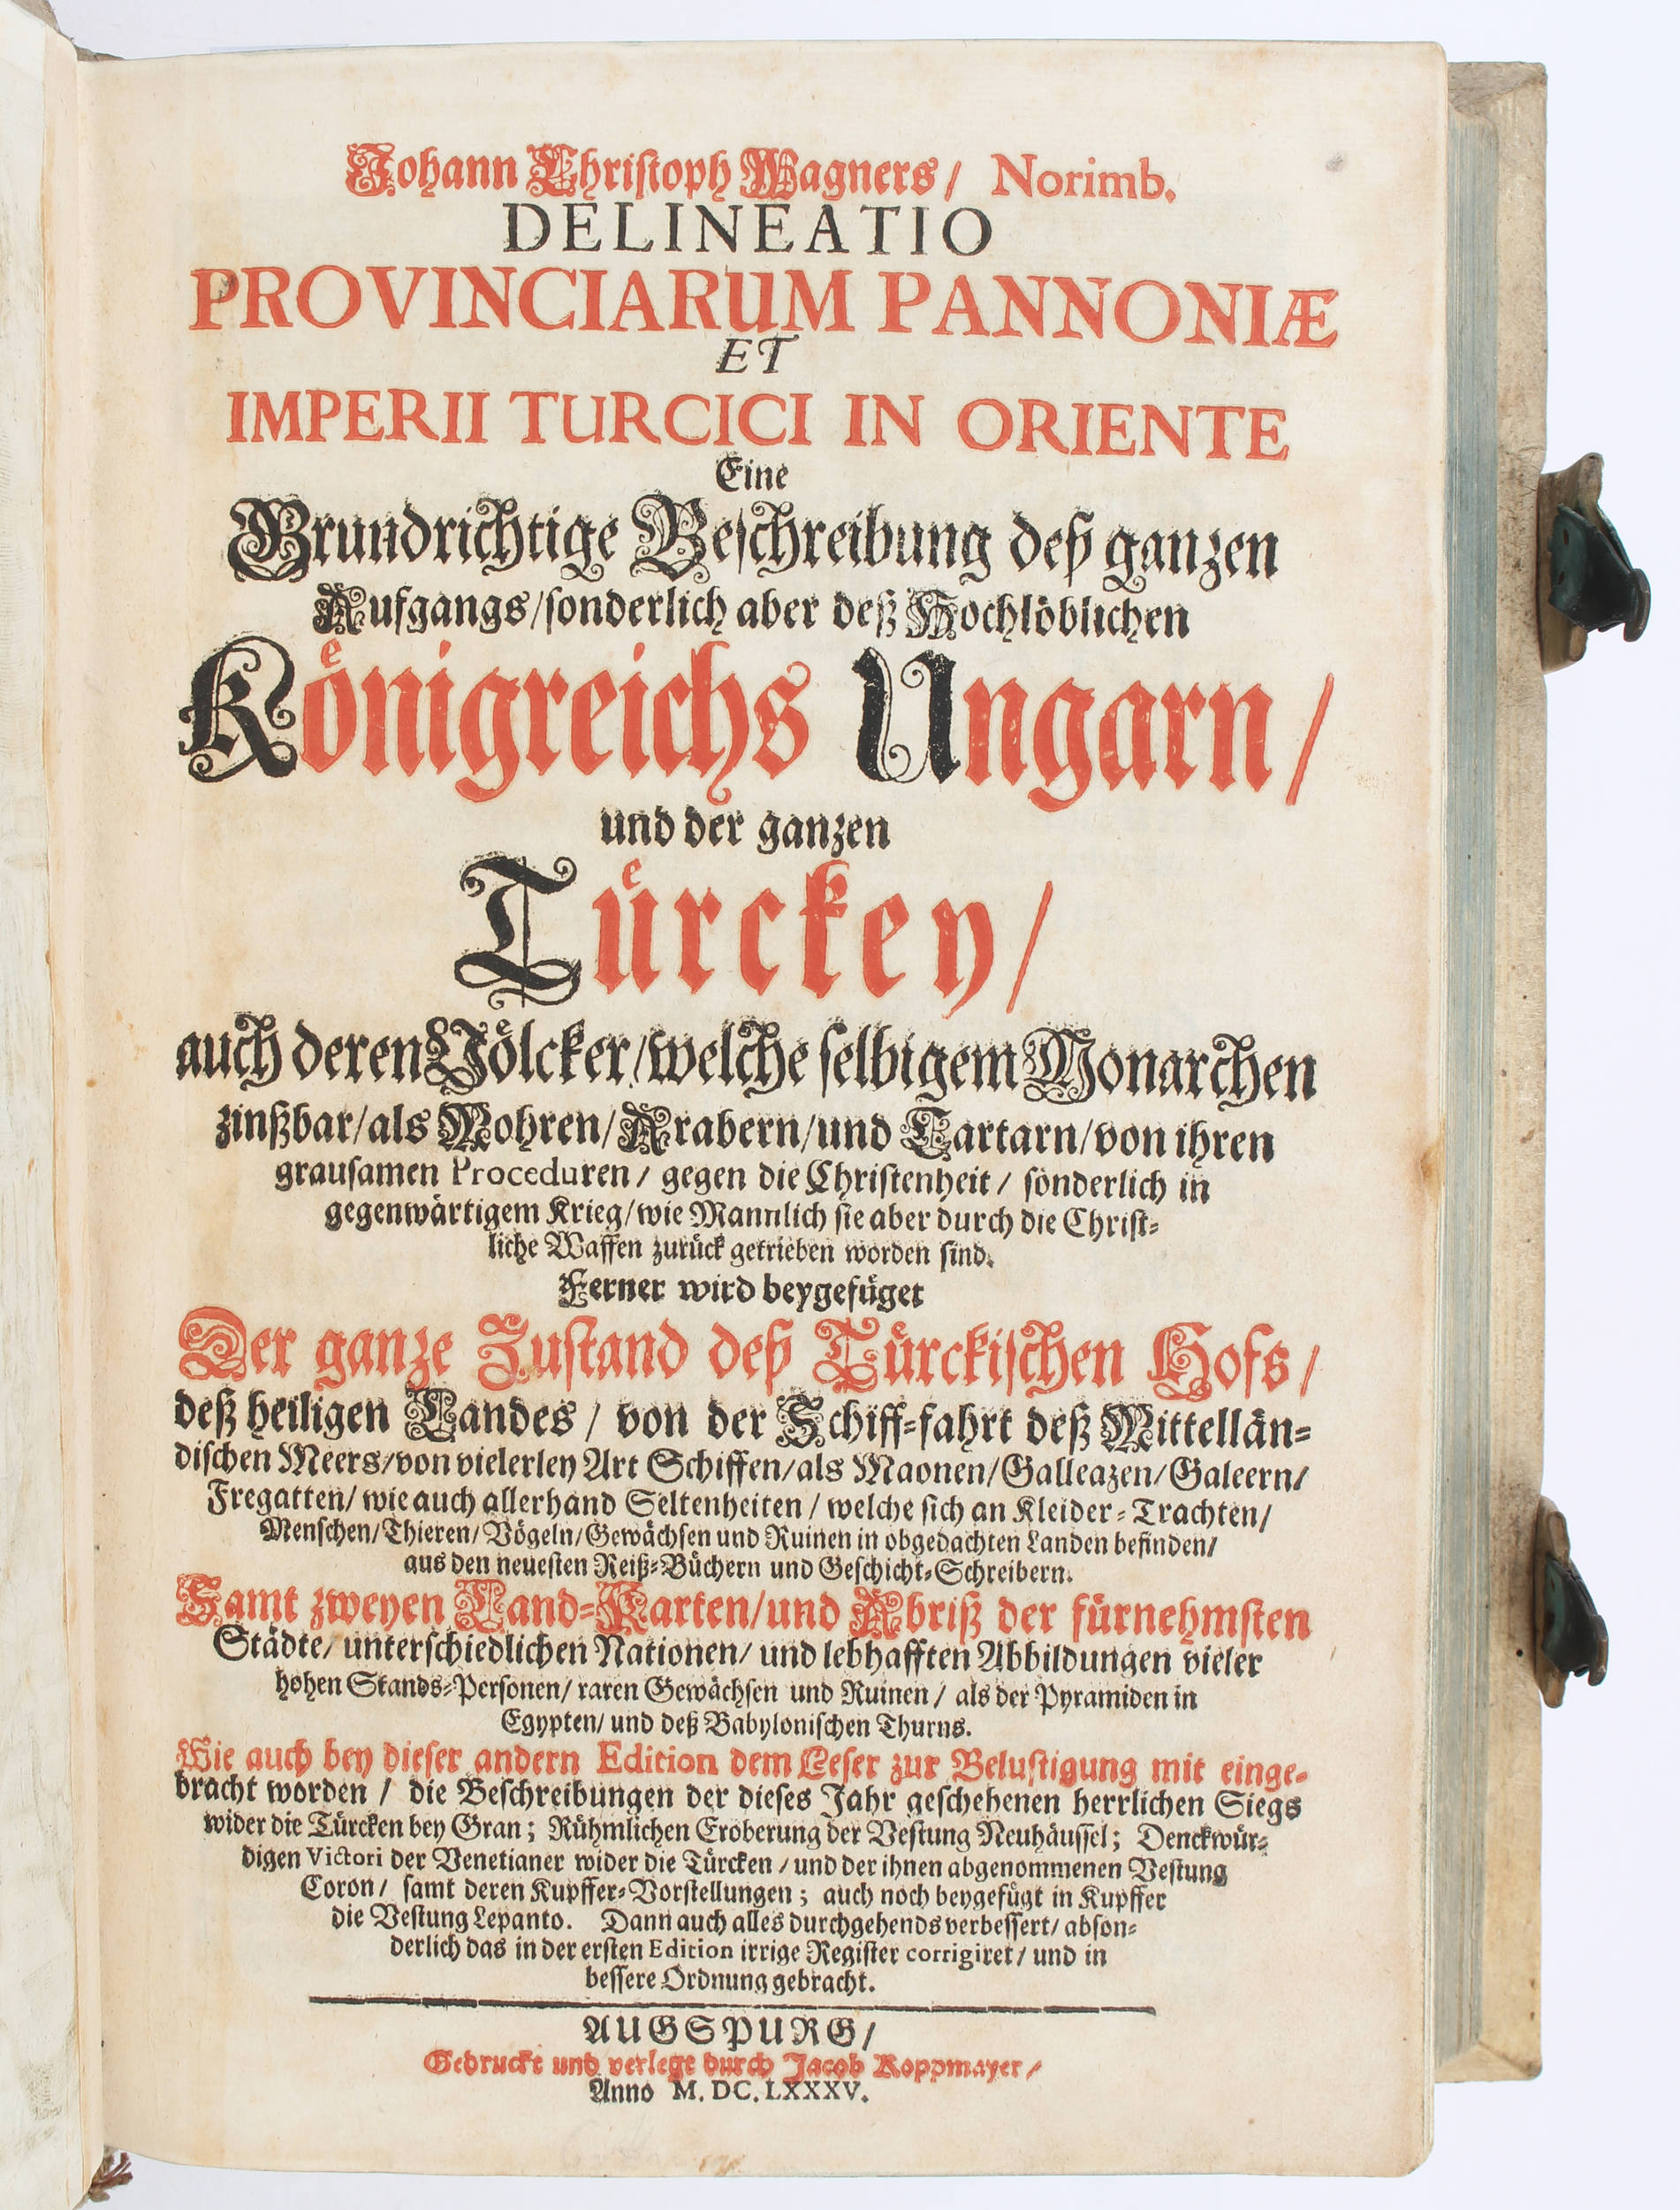 Johann Christoph Wagners / Norimb.
DELINEATIO
PROVINCIARUM PANNONIÆ
ET
IMPERII TURCICI IN ORIENTE
Eine
Grundrichtige Beschreibung deß ganzen
Aufgangs / sonderlich aber deß Hochlöblichen
Koͤnigreichs Ungarn /
und der ganzen
Tuͤrckey /
auch deren Voͤlcker / welche selbigem Monarchen
zinßbar / als Mohren / Arabern / und Tartarn / von ihren
grausamen Proceduren / gegen die Christenheit / sonderlich in
gegenwärtigem Krieg / wie Mannlich sie aber durch die Christ-
liche Waffen zurück getrieben worden sind.
Ferner wird beygefüget
Der ganze Zustand deß Tuͤrckischen Hofs /
deß heiligen Landes / von der Schiff-fahrt deß Mittellän-
dischen Meers / von vielerley Art Schiffen / als Maonen / Galleazen / Galeern /
Fregatten / wie auch allerhand Seltenheiten / welche sich an Kleider-Trachten /
Menschen / Thieren / Vögeln / Gewächsen und Ruinen in obgedachten Landen befinden /
aus den neuesten Reiß-Büchern und Geschicht-Schreibern.
Samt zweyen Land-Karten / und Abriß der fürnehmsten
Städte / unterschiedlichen Nationen / und lebhafften Abbildungen vieler
hohen Stands-Personen / raren Gewächsen und Ruinen / als der Pyramiden in
Egypten / und deß Babylonischen Thurns.
Wie auch bey dieser andern Edition dem Leser zur Belustigung mit einge-
bracht worden / die Beschreibungen der dieses Jahr geschehenen herrlichen Siegs
wider die Türcken bey Gran; Rühmlichen Eroberung der Vestung Neuhäussel; Denckwür-
digen Victori der Venetianer wider die Türcken / und der ihnen abgenommenen Vestung
Coron / samt deren Kupffer-Vorstellungen; auch noch beygefügt in Kupffer
die Vestung Lepanto. Dann auch alles durchgehends verbessert / abson-
derlich das in der ersten Edition irrige Register corrigiret / und in
bessere Ordnung gebracht.
AUGSPURG /
Gedruckt und verlegt durch Jacob Koppmayer /
Anno M. DC. LXXXV.